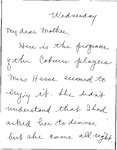 Wednesday
My dear Mother,
Here is the programe
of the Coburn players.
Miss Hasse seemed to
enjoy it. She didn't
understand that I had
asked her to dinner
but she came all right